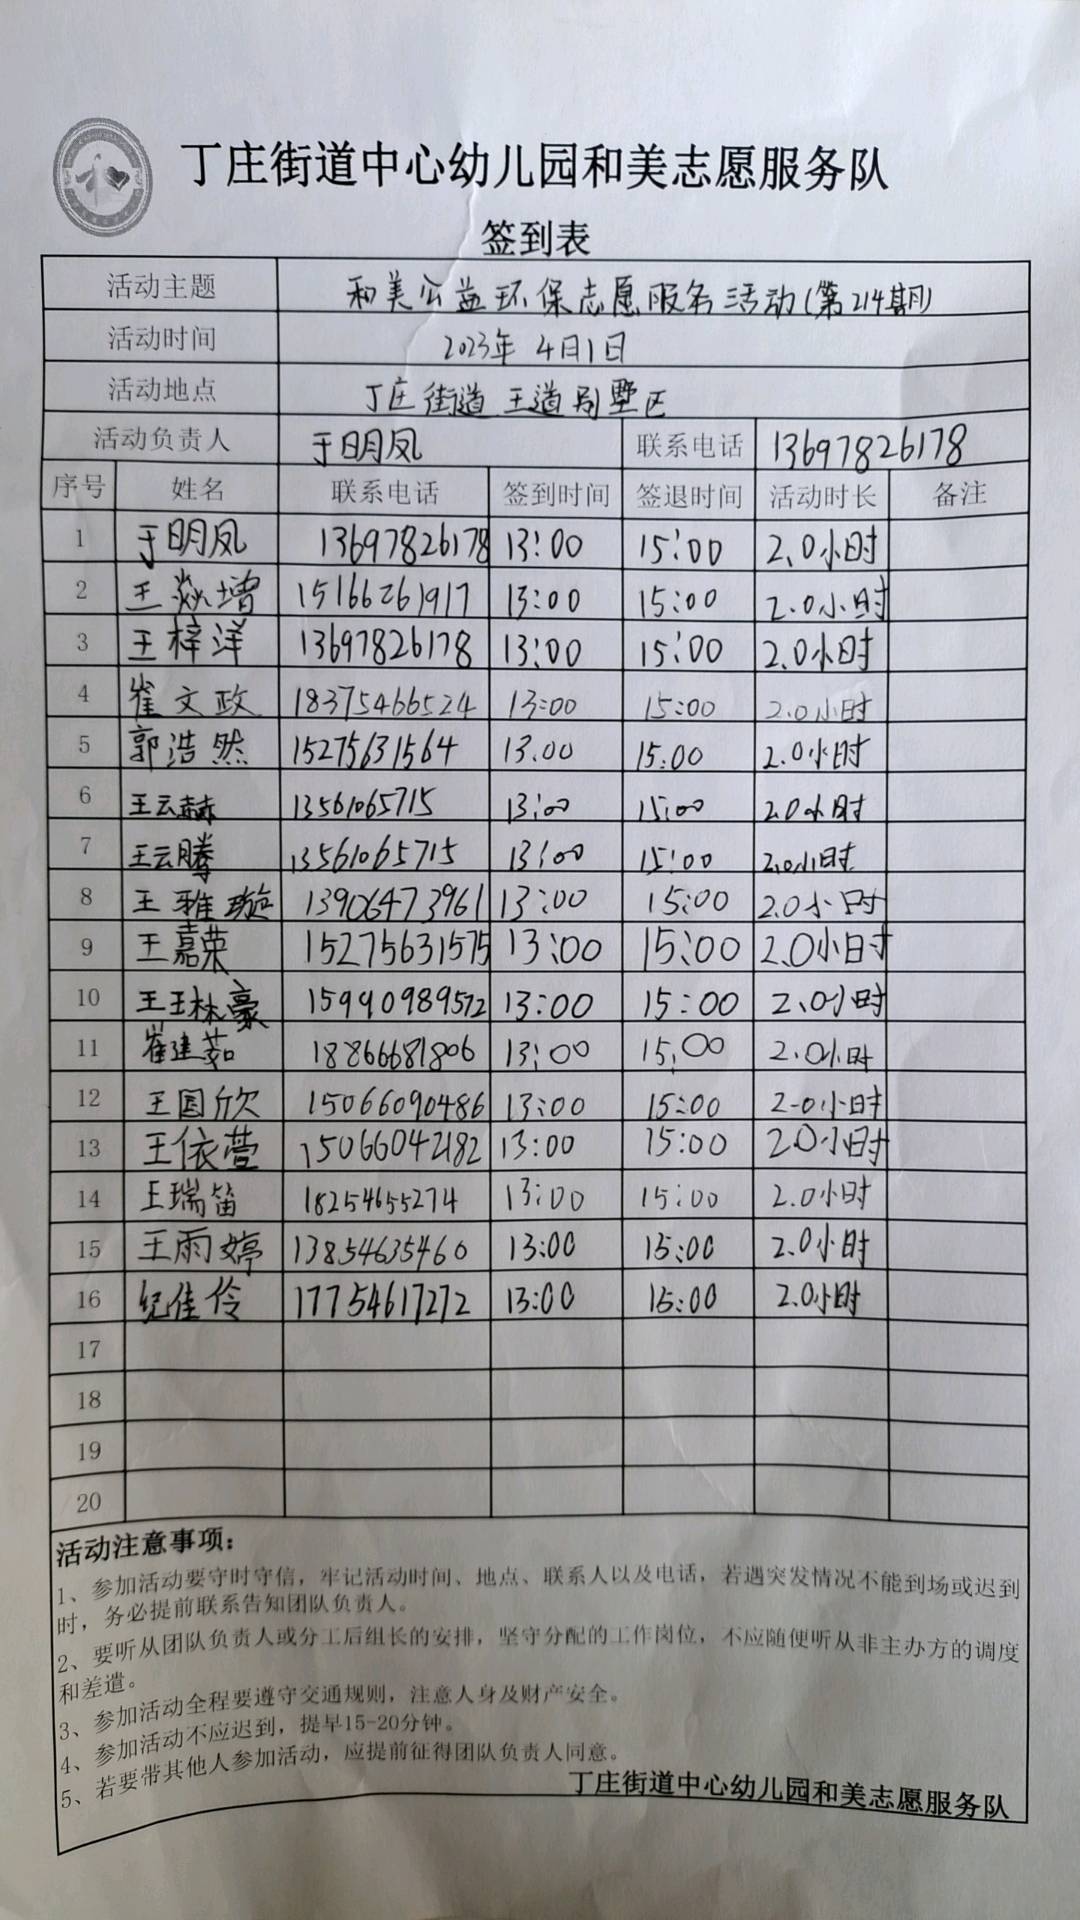 丁庄街道中心幼儿园和美志愿服务队
签到表
活动主题 和美公益环保志愿服务活动(第214期)
活动时间 2023年 4月1日
活动地点 丁庄街道 王道别墅区
活动负责人 于明凤 联系电话 13697826178
序号 姓名 联系电话 签到时间 签退时间 活动时长 备注
1 于明凤 13697826178 13:00 15:00 2.0小时
2 王焱增 15166261917 13:00 15:00 2.0小时
3 王梓洋 13697826178 13:00 15:00 2.0小时
4 崔文政 18375466524 13:00 15:00 2.0小时
5 郭浩然 15275631564 13.00 15:00 2.0小时
6 王云赫 13561065715 13:00 15:00 2.0小时
7 王云腾 13561065715 13:00 15:00 2.0小时
8 王雅璇 13906473961 13:00 15:00 2.0小时
9 王嘉荣 15275631575 13:00 15:00 2.0小时
10 王王林豪 15990989572 13:00 15:00 2.0小时
11 崔建茹 18866681806 13:00 15:00 2.0小时
12 王国欣 15066090486 13:00 15:00 2.0小时
13 王依萱 15066042182 13:00 15:00 2.0小时
14 王瑞笛 18254655274 13:00 15:00 2.0小时
15 王雨婷 13854635460 13:00 15:00 2.0小时
16 纪佳伶 17754617272 13:00 15:00 2.0小时
17
18
19
20
活动注意事项：
1、参加活动要守时守信，牢记活动时间、地点、联系人以及电话，若遇突发情况不能到场或迟到
时，务必提前联系告知团队负责人。
2、要听从团队负责人或分工后组长的安排，坚守分配的工作岗位，不应随便听从非主办方的调度
和差遣。
3、参加活动全程要遵守交通规则，注意人身及财产安全。
4、参加活动不应迟到，提早15-20分钟。
5、若要带其他人参加活动，应提前征得团队负责人同意。
丁庄街道中心幼儿园和美志愿服务队